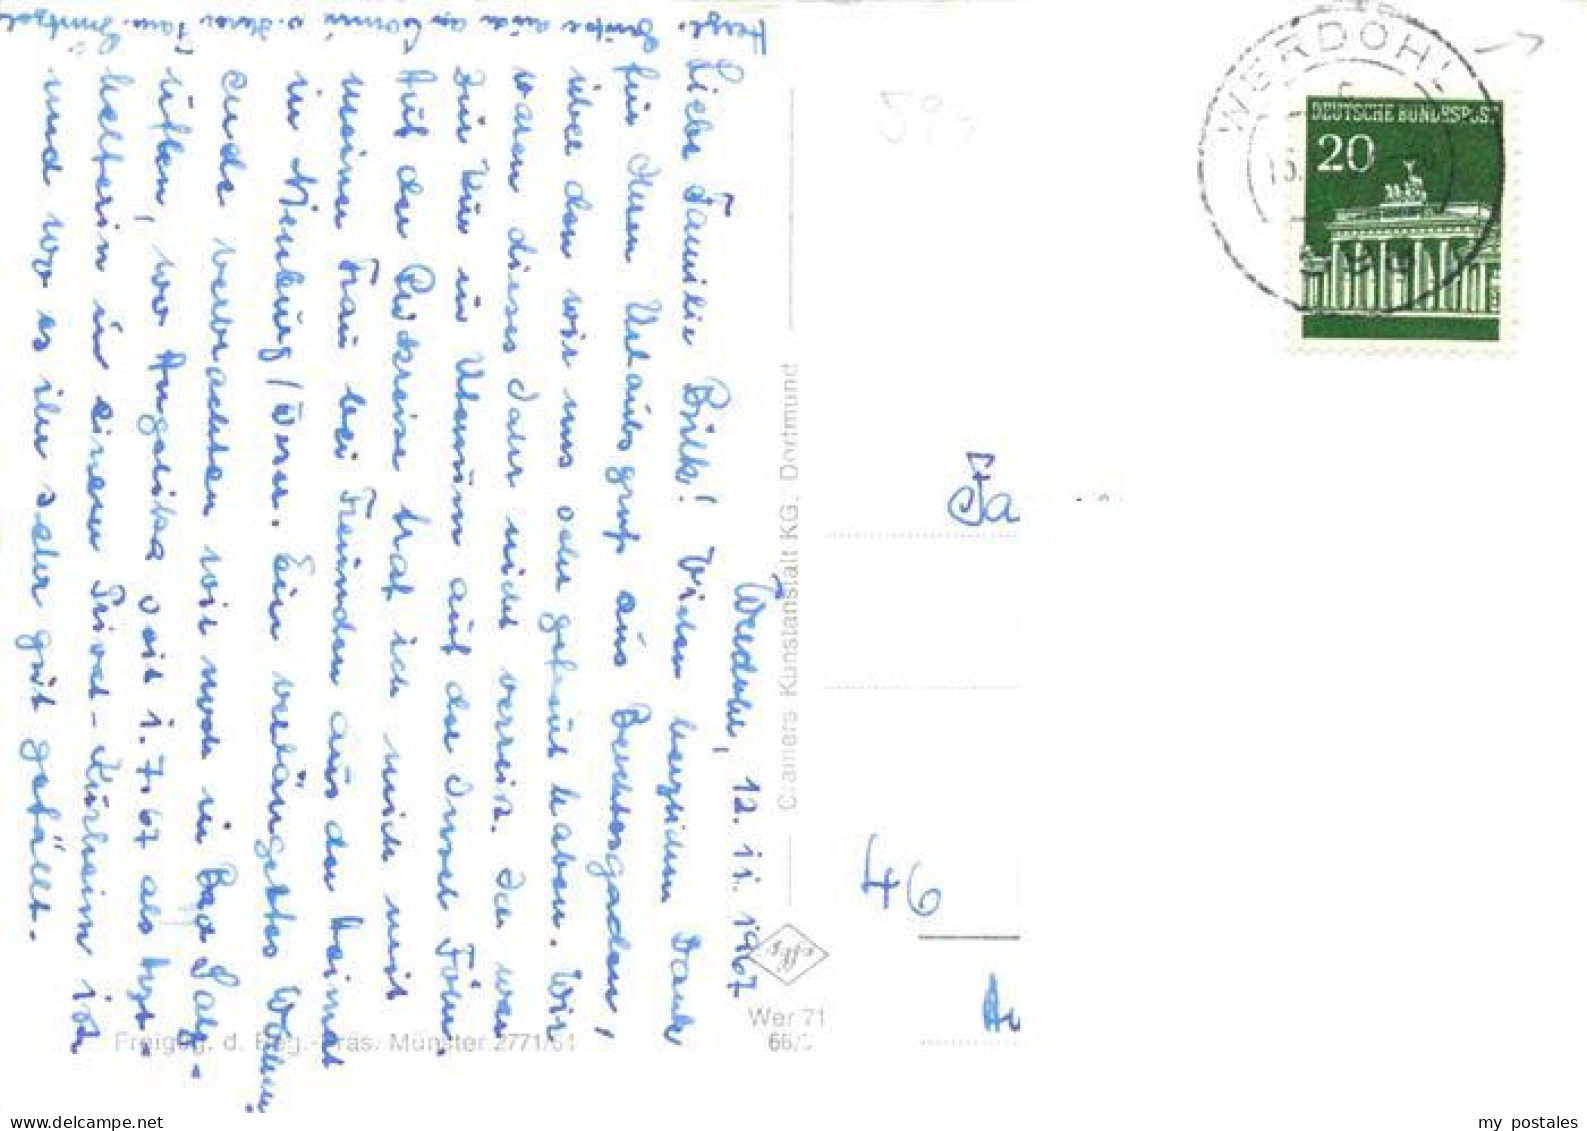 Werdohl, 12.11.1967
Liebe Familie Bilk! Vielen herzlichen Dank
für Ihren Urlaubsgruß aus Berchtesgaden,
über den wir uns sehr gefreut haben. Wir
waren dieses Jahr nicht verreist. Ich war
zur Kur in auf der Insel Föhr.
Auf der Rückreise traf ich mich mit
meiner Frau bei Freunden aus der Heimat
in Nienburg/Weser. Ein verlängertes Wochen
ende verbrachten wir noch in Bad Salz-
uflen, wo Angelika seit 1.7.67 als Arzt-
helferin in einem Privat-Kurheim ist
und wo es ihr sehr gut gefällt.
Herzl. Grüße auch an u. Ihrer Fam.
Cramers Kunstanstalt KG. Dortmund
Freigeg. d. Reg.-Präs. Münster 2771/64
Wer 71
66/
WERDOHL
DEUTSCHE BUNDESPOST
20
593
Fa
46
my postales